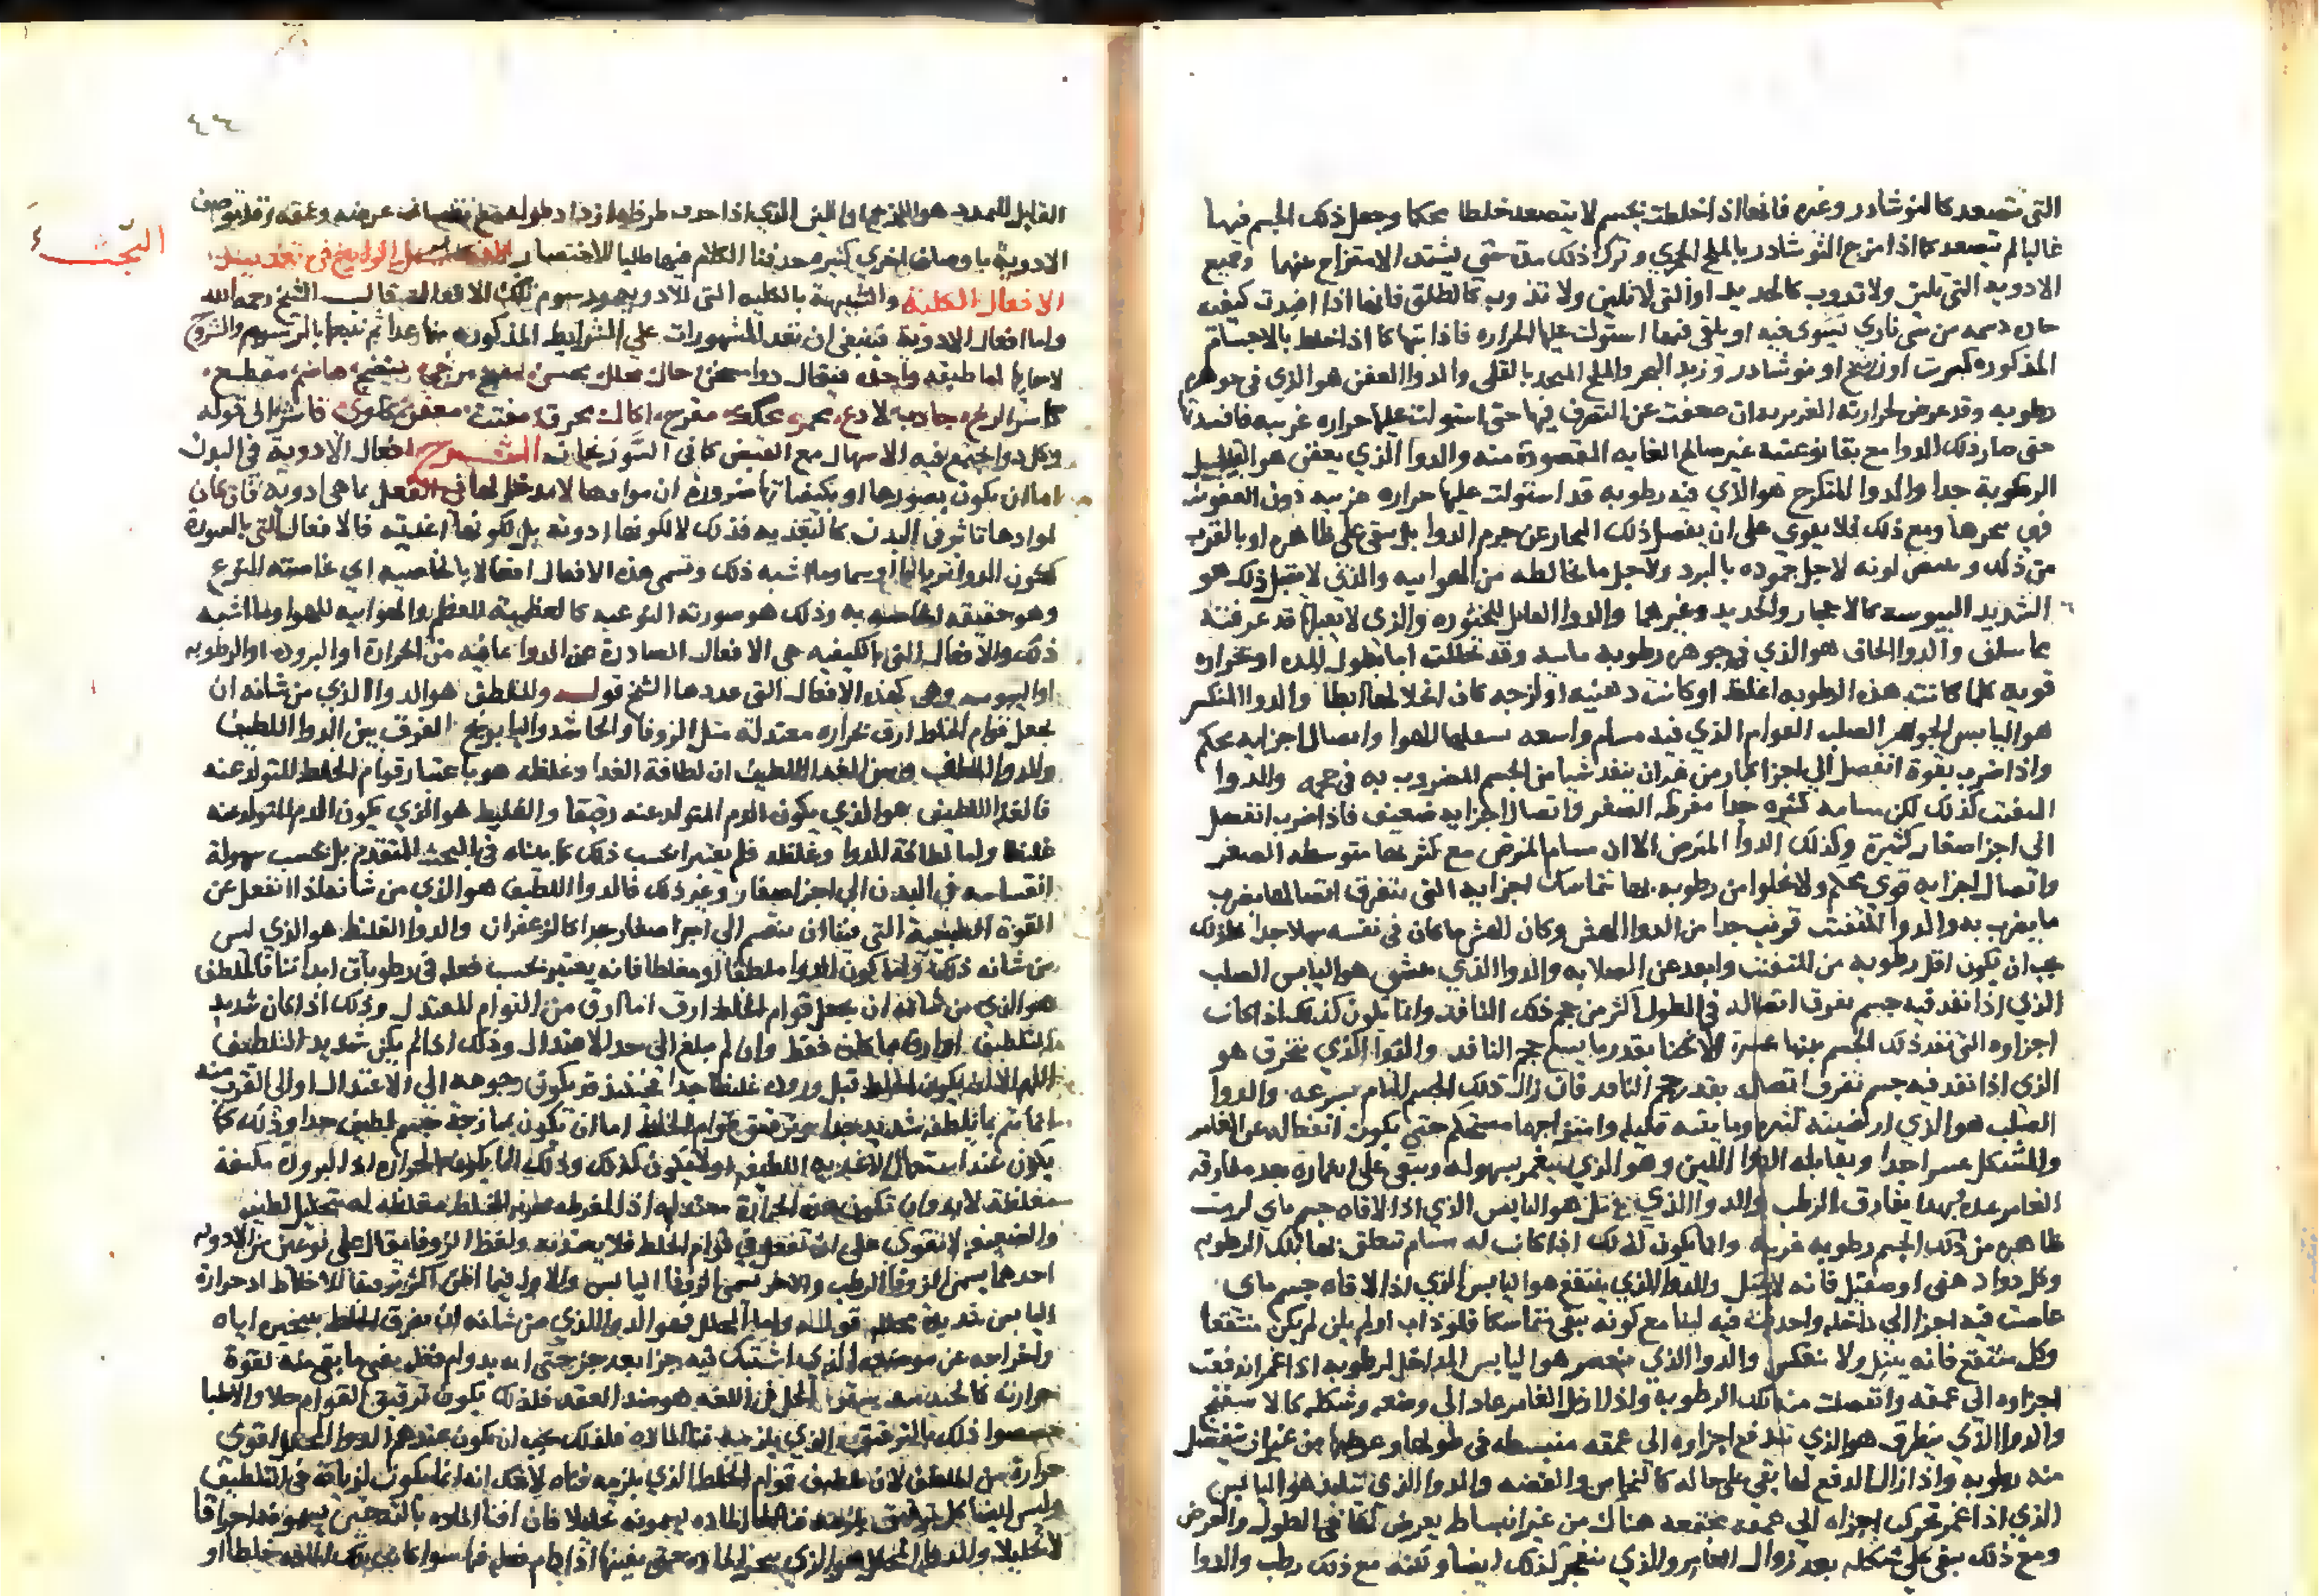 التى تتصعد كالنوشادر وغيره فانها اذا خلطت بجسم لا يتصعد خلطا محكما وجعل ذلك الجسم فيها
غالبا لم تتصعد كما اذا مزج النوشادر بالملح الحجرى وترك ذلك مدة حتى يشتد الامتزاج بينهما وجميع
الادويه التى تلين ولا تذوب كالحديد او التى لا تلين ولا تذوب كالطلق فانها اذا افيدت كيفيه
حاره دسمه من شى نارى تشوى فيه او يلقى فيها استولت عليها الحراره فاذابتها كما اذا خلط بالاجسام
المذكوره كبريت او زرنيخ او نوشادر وزبد البحر والملح المتخذ بالقلى والدوا العفن هو الذى فى جوهره
رطوبه وقد عرض لحرارته الغريزيه ان ضعفت عن التصرف فيها حتى استولت عليها حراره غريبه فافسدتها
حتى صار ذلك الدوا مع بقا نوعيته غير صالح للغايه المقصودة منه والدوا الذي يعفن هو
الرطوبة جدا والدوا المتكرج هو الذي فيه رطوبه قد استولت عليها حراره غريبه دون العفونه
فهى تبخرها ومع ذلك فلا يقوى على ان يفصل ذلك البخار عن جرم الدوا بل يبقى على ظاهره او بالقرب
من ذلك و لونه لاجل جموده بالبرد ولاجل ما يخالطه من الهواييه والذى لا يقبل ذلك هو
الشديد اليبوسه كالاحجار والحديد وغيرهما والدوا القابل للخثوره والذى لا يقبلها قد عرفته
مما سلف والدوا الجاف هو الذي فى جوهره رطوبه ماسه وقد تحللت اما بطول المده او بحراره
قويه كلما كانت هذه الرطوبه اغلظ او كانت دهنيه او لزجه كان انحلالها ابطا والدوا المنكسر
هو اليابس الجوهر الصلب القوام الذي فيه مسام واسعه للهوا واتصال اجزايه محكم
واذا ضرب بقوة انفصل الى اجزا كبار من غير ان ينفد شيا من الجسم المضروب به فى حجمه والدوا
المفتت كذلك لكن مسامه كثيره جدا مفرطه الصغر واتصال اجزايه ضعيف فاذا ضرب انفصل
الى اجزا صغار كثيرة وكذلك الدوا المترضض الا ان مسام المترضض مع كثرتها متوسطه الصغر
واتصال اجزايه قوى محكم ولا يخلوا من رطوبه بها تتماسك اجزايه التى يتفرق اتصالها بضرب
ما يضرب به والدوا المتفتت قريب جدا من الدوا الهش وكان الهش ما كان فى نفسه سهلا جدا فلذلك
يجب ان يكون اقل رطوبه من المتفتت وابعد عن الصلابه والدوا الذي ينشق هو اليابس الصلب
الذي اذا نفد فيه جسم يفرق اتصاله فى الطول اكثر من حجم ذلك النافد وانما يكون كذلك اذا كانت
اجزاوه التى نفد ذلك الجسم بينها عسرة الانحنا بقدر ما يسع حجم النافد والدوا الذي ينخرق هو
الذى اذا نفد فيه جسم تفرق اتصاله بقدر حجم النافد فان زال ذلك الجسم التام بسرعه والدوا
الصلب هو الذي ارضيته كثيره ومايته قليله وامتزاجها مستحكم حتى يكون انفعاله عن الغامز
والمشكل عسرا جدا ويقابله الدوا اللين وهو الذي ينغمز بسهوله ويبقى على انغمازه بعد مفارقه
الغامز مده بهذا يفارق الرطب والدوا الذي يبتل هو اليابس الذي اذا لاقاه جسم ماى لزمت
ظاهره من ذلك الجسم رطوبه غريبه وانما يكون كذلك اذا كانت له مسام تتعلق بها تلك الرطوبه
وكل دوا دهنى او صقيل فانه لا يبتل والدوا الذي ينتقع هو اليابس الذي اذا لاقاه جسم ماى
غاصت فيه اجزا الى داخله واحدثت فيه لينا مع كونه يبقى متماسكا فلو ذاب او لم يلن لم يكن منتقعا
وكل منتقع فانه يبتل ولا ينعكس والدوا الذي ينعصر هو اليابس المداخل لرطوبه اذا غمز اندفعت
اجزاوه الى عمقه وانفصلت منه تلك الرطوبه واذا زال الغامز عاد الى وضعه وشكله كالاسفنج
والدوا الذي ينطرق هو الذي تندفع اجزاوه الى عمقه منبسطه فى طولها وعرضها من غير ان ينفصل
منه رطوبه واذا زال الدافع لها بقى على حاله كالنحاس والفضه والدوا الذي يتلبد هو اليابس
الذي اذا غمز تحركت اجزاه الى عمقه مجتمعه هناك من غير انبساط يعرض لها فى الطول والعرض
ومع ذلك يبقى على شكله بعد زوال الغامز والذي ينعجن كذلك ايضا ولكنه مع ذلك رطب والدوا
٤٦
القابل للتمديد هو اللزج اما اللين الذي اذا جذب طرفاه ازداد طوله مع نقصان عرضه وعمقه وقد توصف
الادوية باوصاف اخرى كثيره حذفنا الكلام فيها طلبا للاختصار الفصل الرابع فى تعديد
البحث
الافعال الكلية والشبيهة بالكليه التى للادويه ورسوم تلك الافعال قال الشيخ رحمه الله
واما افعال الادوية فينبغى ان نعد المشهورات على الشرايط المذكوره منها عدا ثم نتبعها بالرسوم والشروح
لاسمايها اما طبقه واحده فيقال دوا مسخن حال محلل مخشن مفتح مرخى منضج هاضم مقطع
كاسر الريح جاذب لاذع محمر محكك مقرح اكال محرق مفتت معفن كاوى قاشر الى قوله
وكل دوا يجتمع فيه الاسهال مع القبض كما فى السورنجان الشرح افعال الادوية فى البدن
اما ان يكون بصورها او بكيفياتها ضرورة ان موادها لا مدخل لها فى الفعل بما هى ادويه فان كان
لموادها تاثير فى البدن كالتغذيه فذلك لا لكونها ادوية بل لكونها اغذيه فالافعال التى بالصورة
ككون الدوا ترياقا او سما وما اشبه ذلك وتسمى هذه الافعال افعالا بالخاصيه اى خاصيته النوع
وهو حقيقه الخاصه به وذلك هو صورته النوعيه كالعظمية للعظم والهواييه للهوا وما اشبه
ذلك والافعال التى بالكيفيه هى الافعال الصادرة عن الدوا بما فيه من الحرارة او البروده او الرطوبه
او اليبوسه وهى كهذه الافعال التى عددها الشيخ قوله والملطف هو الدوا الذي من شانه ان
يجعل قوام الخلط ارق بحراره معتدلة مثل الزوفا والحاشا والبابونج الفرق بين الدوا اللطيف
والدوا الملطف وبين الغذا اللطيف ان لطافة الغذا وغلظه هو باعتبار قوام الخلط المتولد عنه
فالغذا اللطيف هو الذي يكون الدم المتولد عنه رقيقا والغليظ هو الذي يكون الدم المتولد عنه
غليظا واما لطافة الدوا وغلظه فلم يعتبرا بحسب ذلك كما بيناه فى البحث المتقدم بل بحسب سهولة
انقسامه فى البدن الى اجزا صغار وغير ذلك فالدوا اللطيف هو الذي من شانه اذا انفعل عن
القوة الطبيعية التى فينا ان ينقسم الى اجزا صغار جدا كالزعفران والدوا الغليظ هو الذي ليس
من شانه ذلك وانما كون الدوا ملطفا او مغلظا فانه يعتبر بحسب فعله فى رطوبات ابداننا فالملطف
هو الذي من شانه ان يجعل قوام الخلط ارق اما ارق من القوام المعتدل وذلك اذا كان شديد
التلطيف او ارق مما كان فقط وان لم يبلغ الى حد الاعتدال وذلك اذا لم يكن شديد التلطيف
يكون الخلط قبل وروده غليظا جدا فحينئذ قد يكون رجوعه الى الاعتدال او الى القرب منه
انما يتم بما تلطفه شديد جدا وترقيق قوام الخلط اما ان تكون بممازجة جسم لطيف جدا وذلك كما
يكون عند استعمال الاغذيه اللطيفه او لا يكون كذلك وذلك انما يكون بالحرارة اذ البرودة مكثفة
مغلظة لابد وان تكون هذه الحرارة معتدله اذ المفرطه مغلظه له بتحليل لطيفه
والضعيفه لا تقوى على ان تفعل فى قوام الخلط فلا يعتد به ولفظ الزوفا يقال على نوعين من الادويه
احدهما يسمى الزوفا الرطب والاخر يسمى الزوفا اليابس والاول فيما اظن اكثر ترقيقا للاخلاط اذ حرارة
اليابس قوله واما المحلل فهو الدوا الذي من شانه ان يفرق الخلط بتبخيره اياه
واخراجه عن موضعه الذي اشتبك فيه جزا بعد جز حتى انه بدوام فعله يفنى ما بقى منه لقوة
حرارته كالجندبيدستر الحل فى اللغه هو ضد العقد فلذلك يكون ترقيق القوام حلا والاطبا
خصصوا ذلك بالترقيق الذي يلزمه فنا الماده فلذلك يجب ان يكون عندهم الدوا المحلل اقوى
حرارة من الملطف لان تلطيف قوام الخلط الذي يلزمه فناه لا شك انه انما يكون لزيادة فى التلطيف
وليس ايضا كل ترقيق يلزمه فنا الماده يسمونه تحليلا فان افنا الماده بالتسخين يسمونه احراقا
لا تحليلا والدوا المحلل هو الذي يبخر الماده حتى يفنيها اذا دام فعله فيها سوا كانت تلك الماده خلطا او